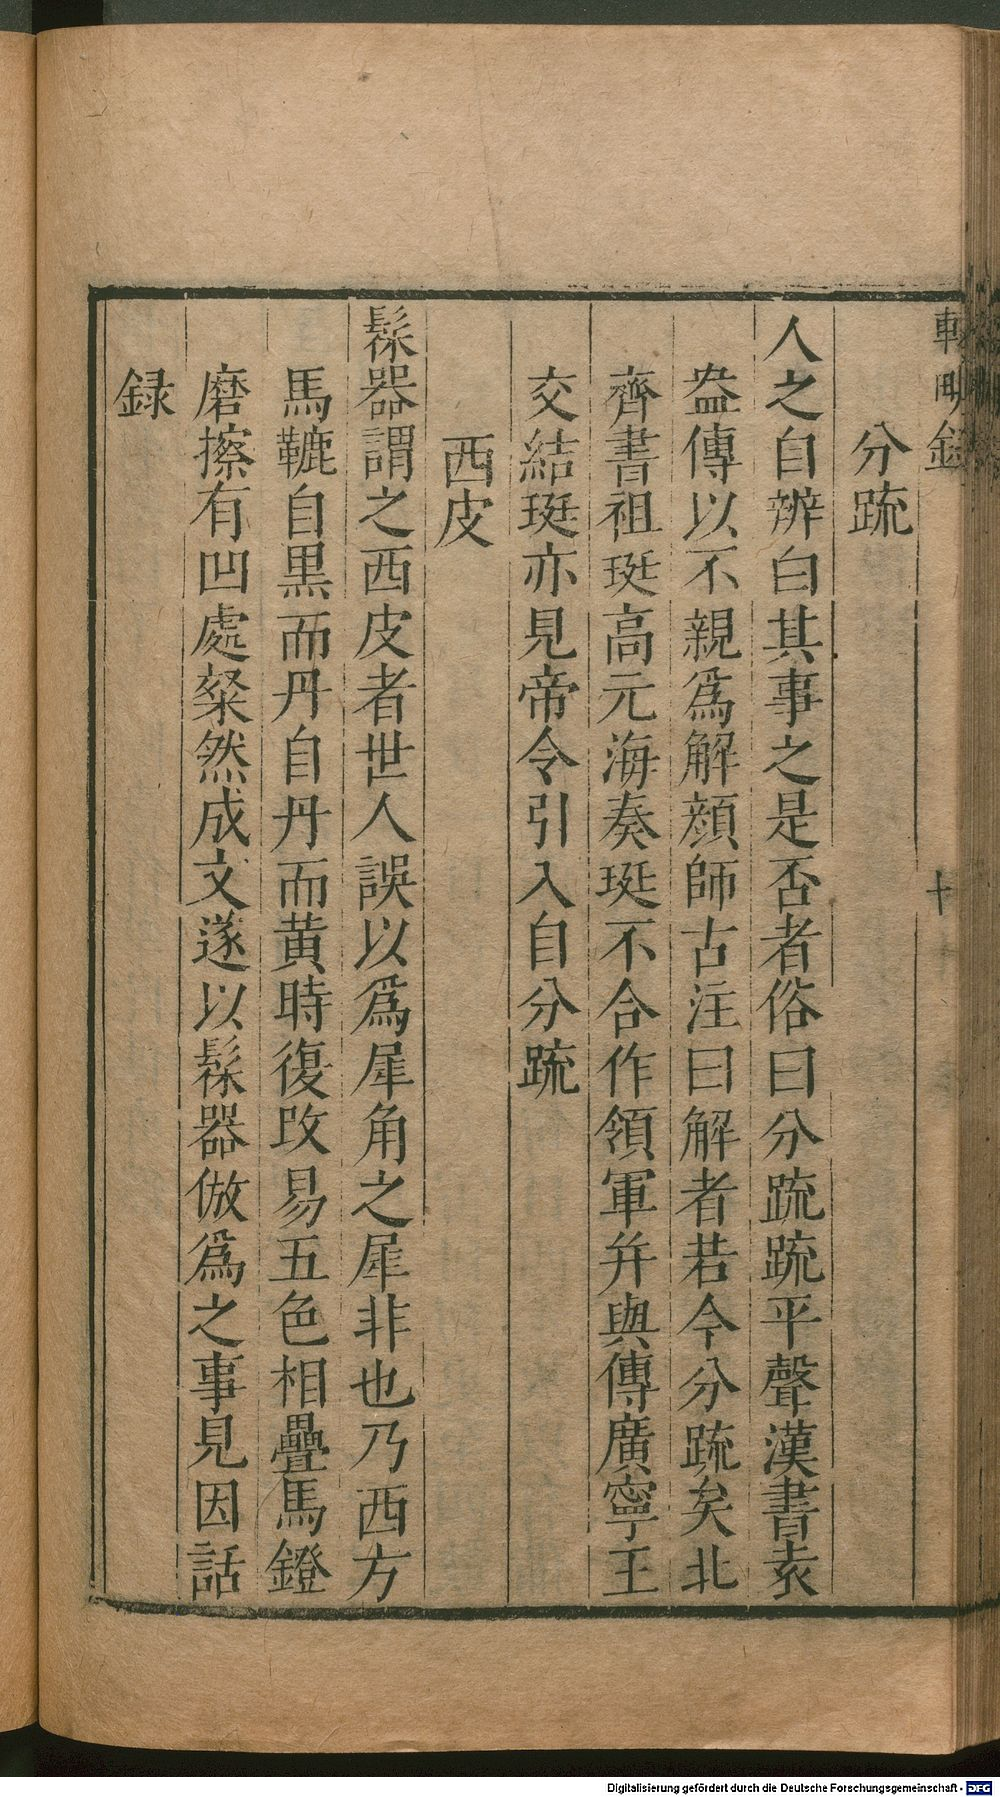 輟畊錄
十
分䟽
人之自辨白其事之是否者俗曰分䟽䟽平聲漢書袁
盎傳以不親爲解顔師古注曰解者若今分䟽矣北
齊書祖珽高元海奏珽不合作領軍并與傳廣寧王
交結珽亦見帝令引入自分䟽
西皮
髹器謂之西皮者世人誤以爲犀角之犀非也乃西方
馬䩞自黒而丹自丹而黄時復改易五色相疊馬鐙
磨擦有凹處粲然成文遂以髹器倣爲之事見因話
録
Digitalisierung gefördert durch die Deutsche Forschungsgemeinschaft - DFG